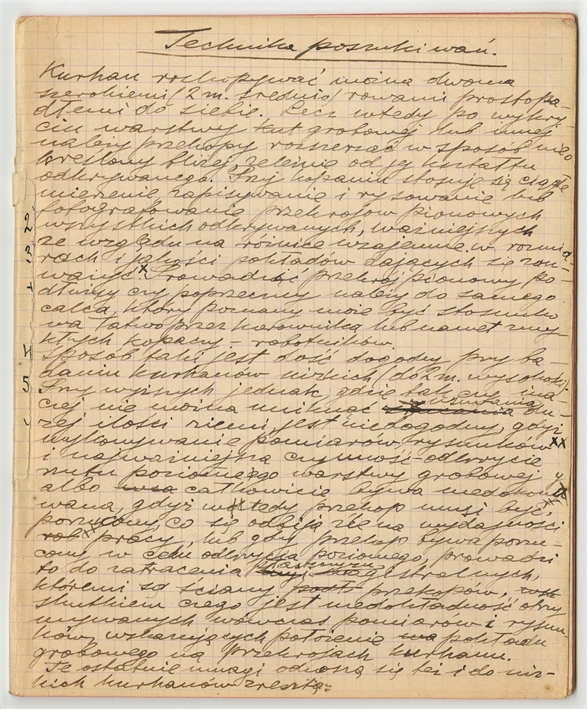 Technika poszukiwań.
Kurhan rozkopywać można dwoma
szerokiemi (2 m. średnio) rowami prostopa-
dłemi do siebie. Lecz wtedy po wykry-
ciu warstwy kult. grobowej lub innej
należy przekopy rozszerzać w sposób nieo-
kreślony bliżej, zależnie od jej kształtu
odkrywanego. Przy kopaniu stosuje się ciągłe
mierzenie, zapisywanie i rysowanie lub
fotografowanie przekrojów pionowych
wszystkich odkrywanych, ważniejszych
ze względu na różnice wzajemne w rozmia-
rach i jakości pokładów dających się zau-
ważyć x Prowadzić przekrój pionowy po-
dłużny czy poprzeczny należy do samego
calca, który poznany może być stosunko-
wo łatwo przez kierownika lub nawet zwy-
kłych kopaczy - robotników.
Sposób taki jest dość dogodny przy ba-
daniu kurhanów niskich (do 2 m. wysokości)
Przy wyższych jednak, gdzie
ciej nie można uniknąć du-
żej ilości ziemi, jest niedogodny, gdyż
wykonywanie pomiarów, rysunków xx
i najważniejsza czynność odkrycie
rzutu poziomego warstwy grobowej
albo całkowicie bywa niedokony-
wana, gdyż wtedy przekop musi być
porzucony, co się odbija źle na wydajności
pracy, lub gdy przekop bywa porzu-
cony w celu odkrycia poziomego, prowadzi
to do zatracenia magistralnych,
któremi są ściany przekopów,
skutkiem czego jest niedokładność otrzy-
mywanych wówczas pomiarów i rysun-
ków, wskazujących położenie pokładu
grobowego na przekrojach kurhanu.
Te ostatnie uwagi odnoszą się też i do niz-
kich kurhanów zresztą.